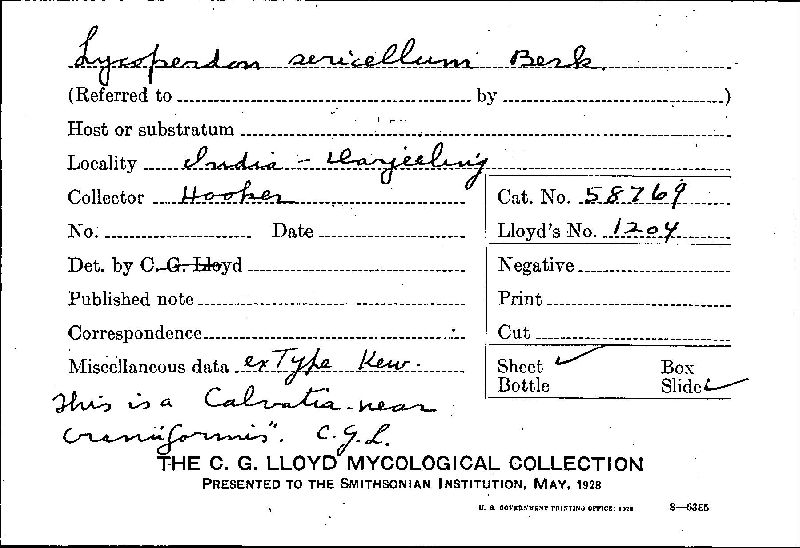 Lycoperdon sericellum Berk.
(Referred to by )
Host or substratum
Locality India - Darjeeling
Collector Hooker
Cat. No. 58769
No. Date
Lloyd's No. 1204
Det. by C. G. Lloyd
Negative
Published note
Print
Correspondence
Cut
Miscellaneous data ex Type Kew.
Sheet ✓ Box
Bottle Slide ✓
This is a Calvatia near
craniiformis". C.G.L.
THE C. G. LLOYD MYCOLOGICAL COLLECTION
PRESENTED TO THE SMITHSONIAN INSTITUTION, MAY, 1928
U. S. GOVERNMENT PRINTING OFFICE: 1928 8—6355